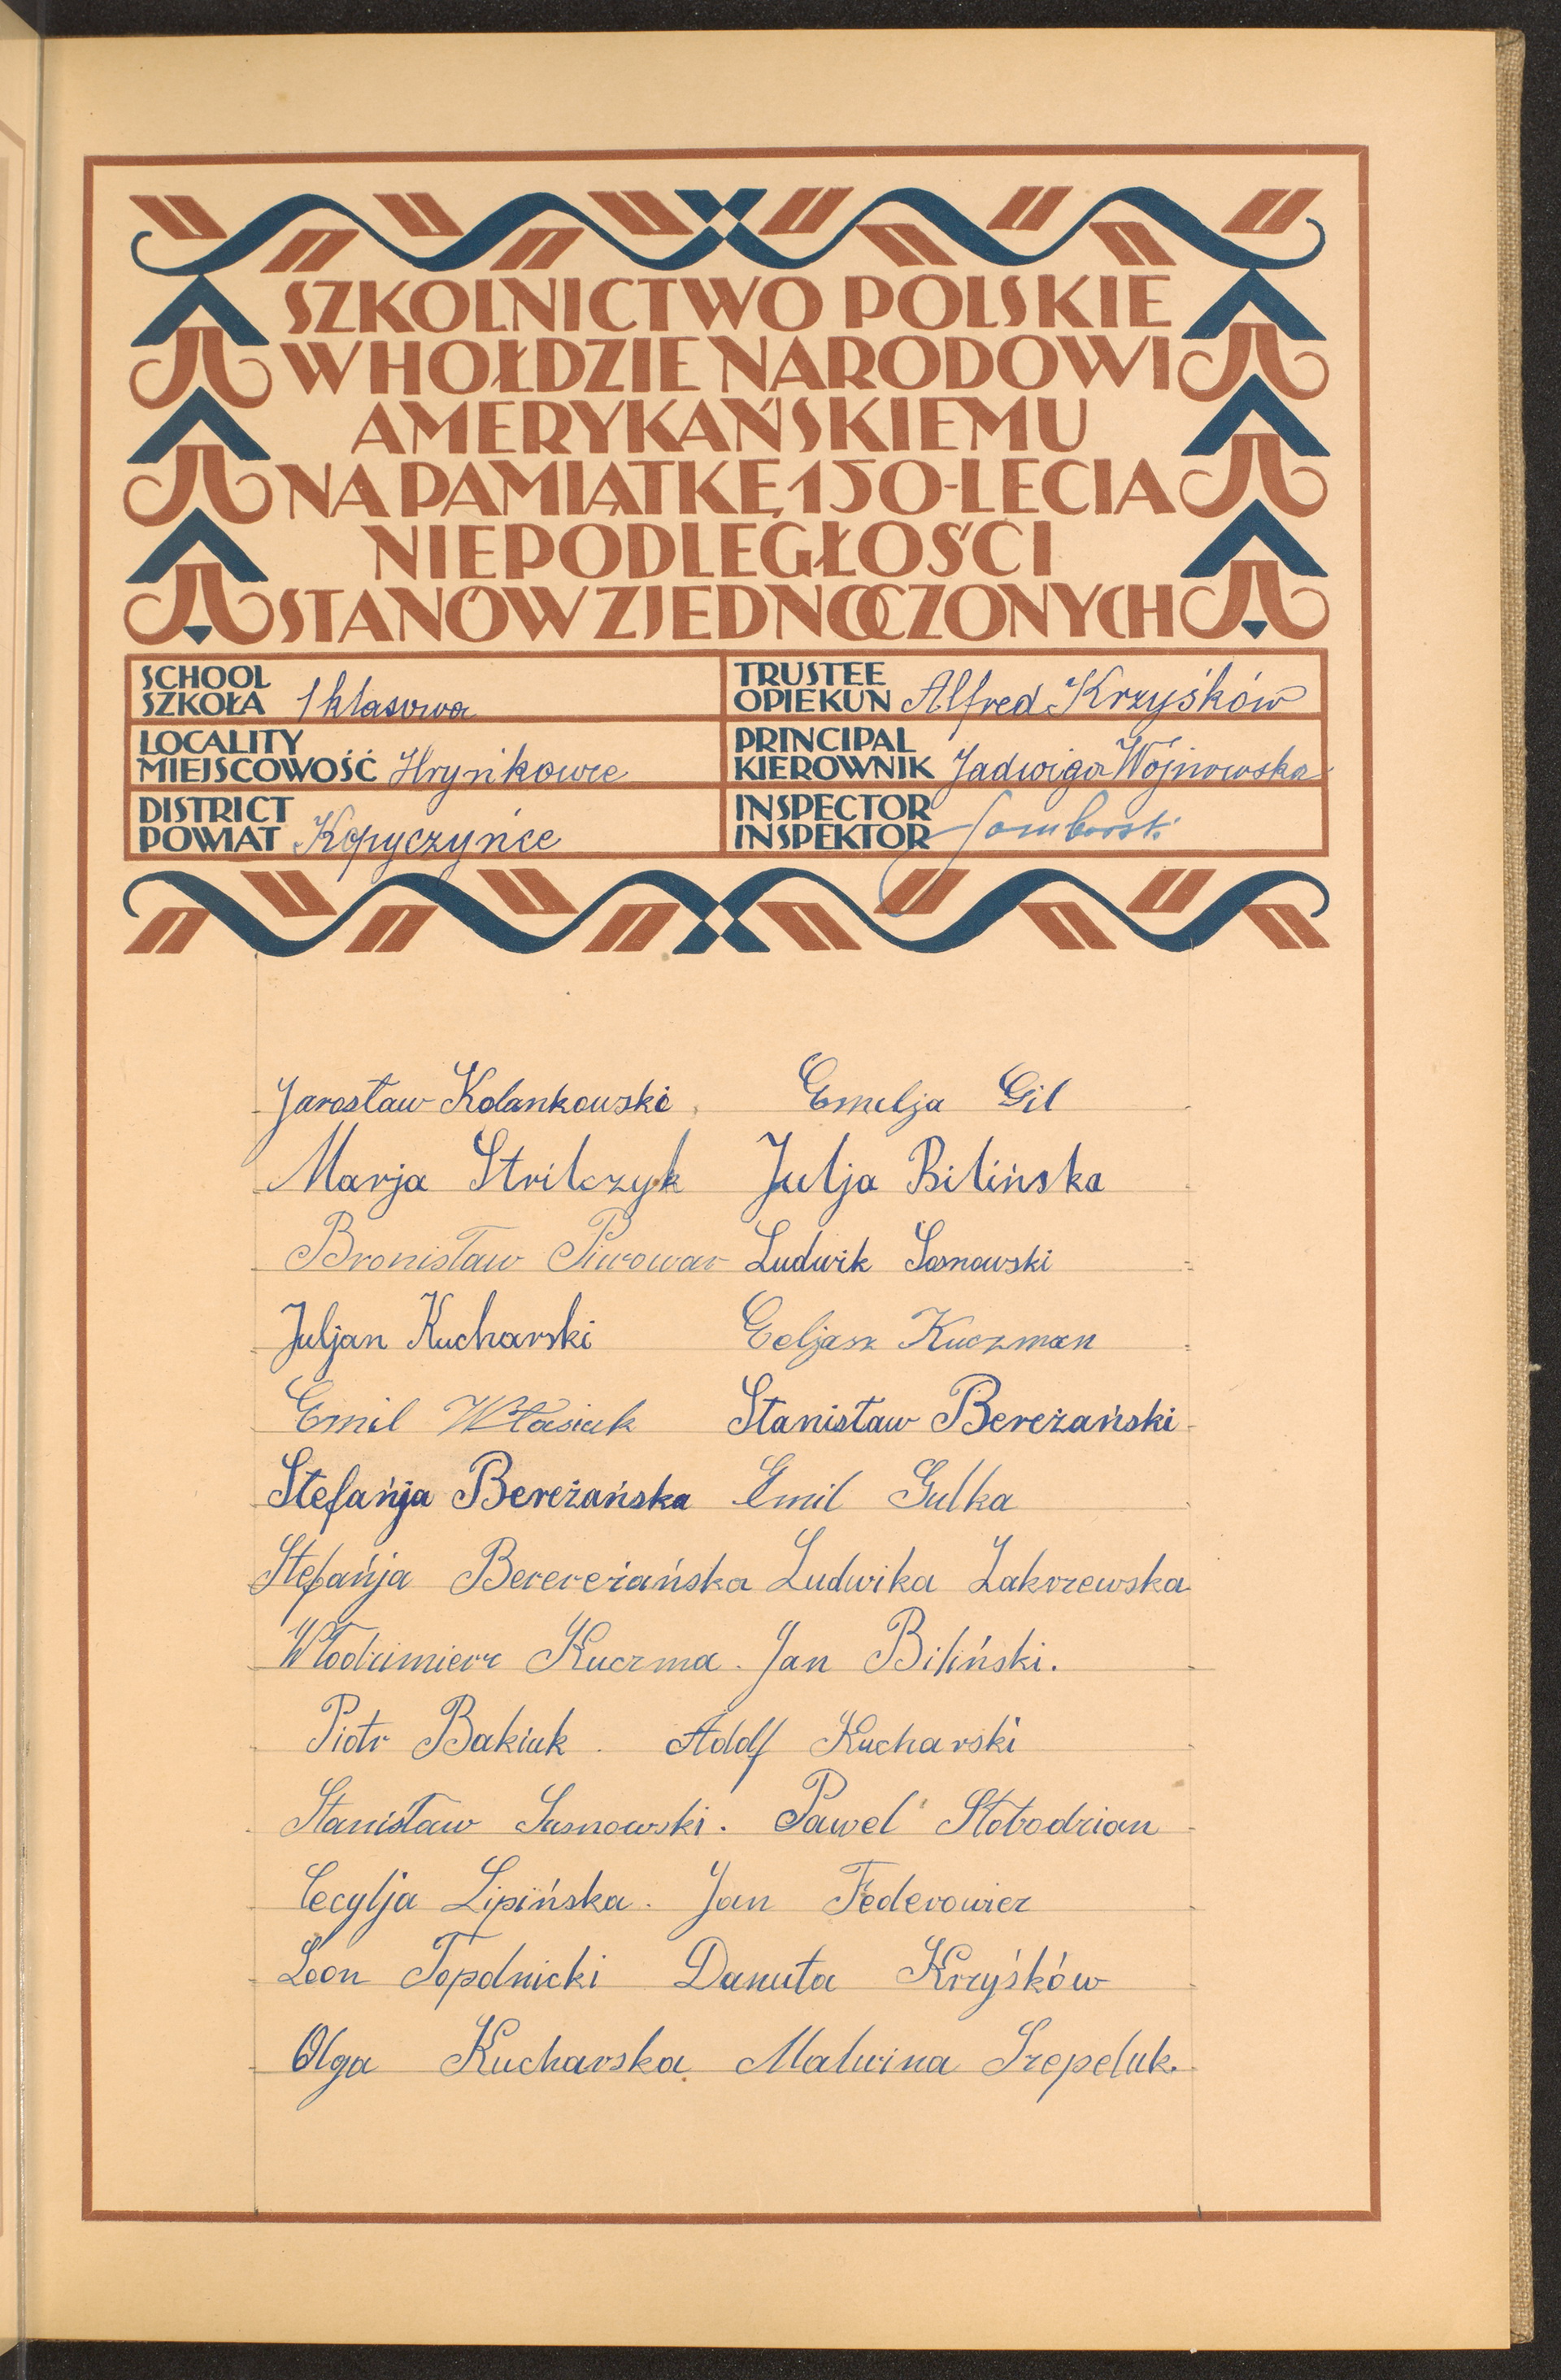 SZKOLNICTWO POLSKIE
W HOŁDZIE NARODOWI
AMERYKAŃSKIEMU
NA PAMIĄTKĘ 150-LECIA
NIEPODLEGŁOŚCI
STANÓW ZJEDNOCZONYCH
SCHOOL
SZKOŁA 1 klasowa
TRUSTEE
OPIEKUN Alfred Krzyśków
LOCALITY
MIEJSCOWOŚĆ Hryńkowce
PRINCIPAL
KIEROWNIK Jadwiga Wójnowska
DISTRICT
POWIAT Kopyczyńce
INSPECTOR
INSPEKTOR
Jarosław Kolankowski Emelja Gil
Marja Strilczyk Julja Bilińska
Bronisław Piwowar Ludwik Sosnowski
Juljan Kucharski Eeljasz Kuczman
Emil Własiuk Stanisław Bereżański
Stefańja Bereżańska Emil Gulka
Stefańja Berereżańska Ludwika Zakrzewska
Włodzimierz Kuczma. Jan Biliński.
Piotr Bakiuk. Adolf Kucharski
Stanisław Susnowski. Paweł Słobodzian
Cecylja Lipińska. Jan Federowicz
Leon Topolnicki Danuta Krzyśków
Olga Kucharska. Malwina Szepeluk.